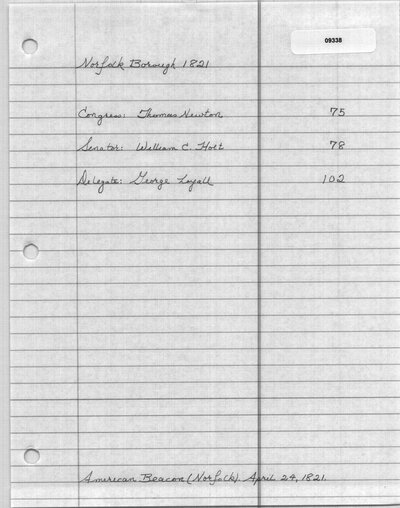 09338
Norfolk Borough 1821
Congress: Thomas Newton 75
Senator: William C. Holt 78
Delegate: George Loyall 102
American Beacon (Norfolk). April 24, 1821.